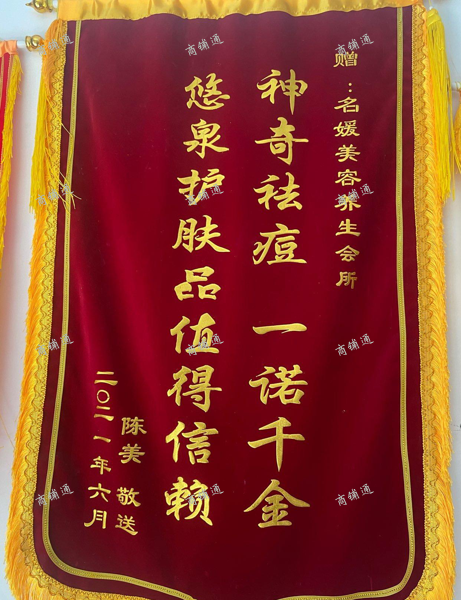 赠：名媛美容养生会所
神奇祛痘 一诺千金
悠泉护肤品值得信赖
陈美 敬送
二〇二一年六月
商铺通
商铺通
商铺通
商铺通
商铺通
商铺通
商铺通
商铺通
商铺通
商铺通
商铺通
商铺通